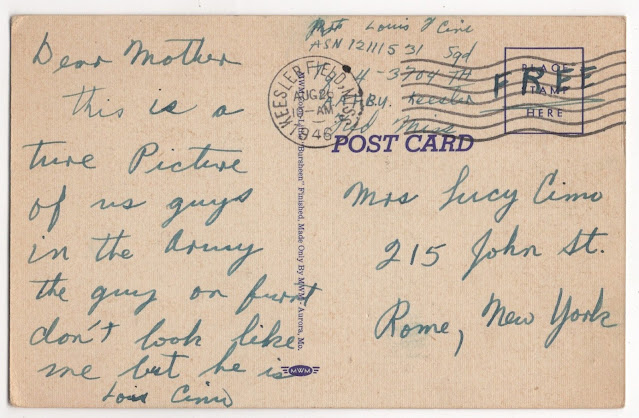 Dear Mother
this is a
ture Picture
of us guys
in the Army
the guy on furnt
don't look like
me but he is
Louis Cimo
Louis J Cimo
ASN 12111531
Sqd
4-3704 TH
Keesler
Miss
KEESLER FIELD, MISS.
AUG 26
10-AM
1946
FREE
PLACE
STAMP
HERE
POST CARD
"Bursheen" Finished, Made Only By MWM - Aurora, Mo.
MWM
Mrs Lucy Cimo
215 John St.
Rome, New York